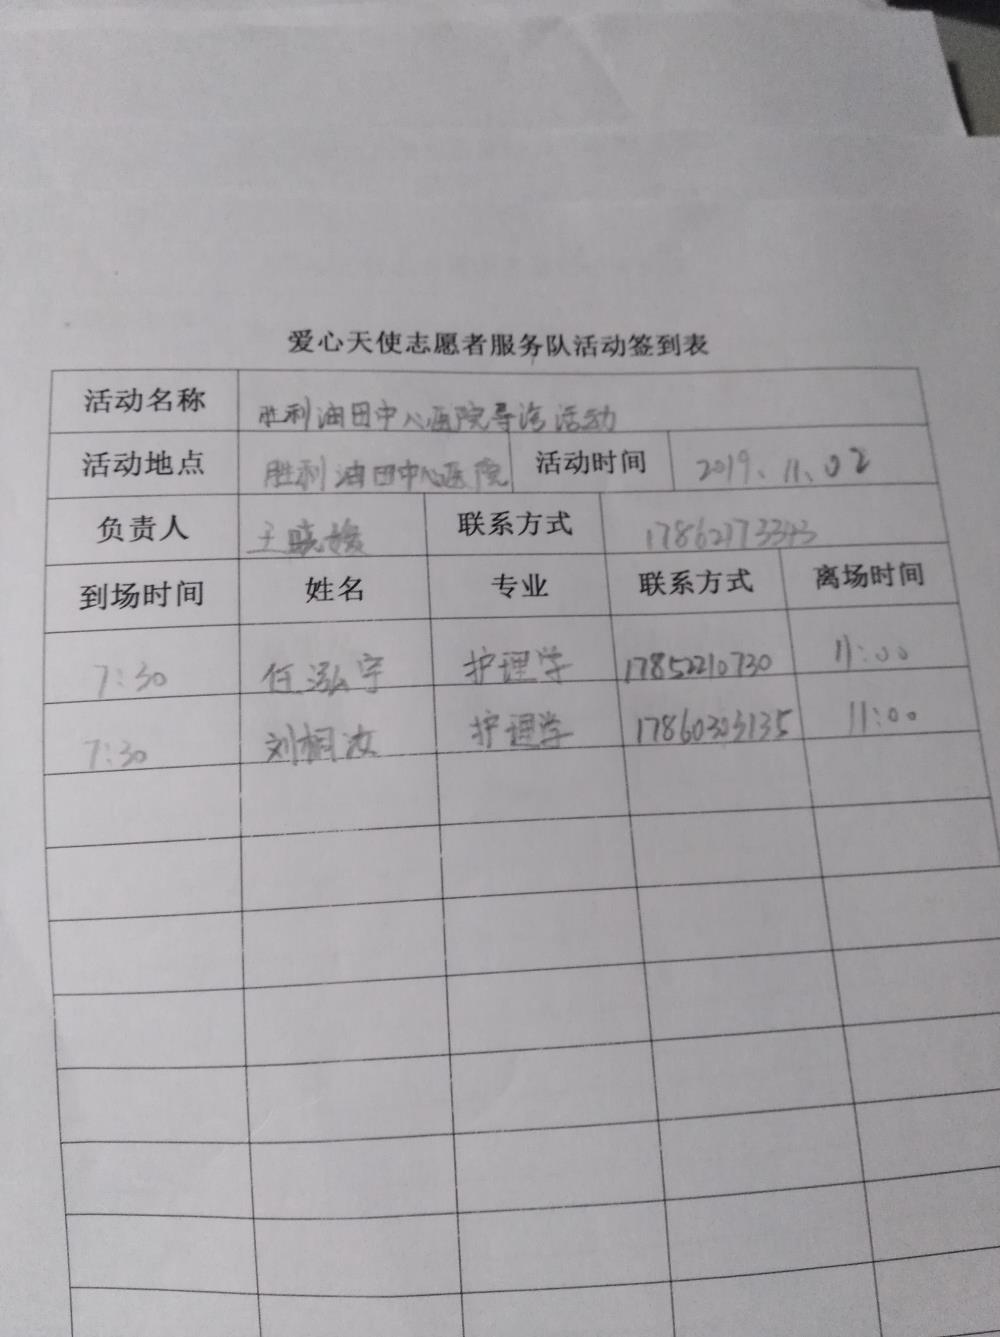 爱心天使志愿者服务队活动签到表
活动名称 胜利油田中心医院导诊活动
活动地点 胜利油田中心医院 活动时间 2019.11.02
负责人 王晓 联系方式
到场时间 姓名 专业 联系方式 离场时间
7:30 任泓宇 护理学 17852210730 11:00
7:30 刘桐汝 护理学 17860303135 11:00